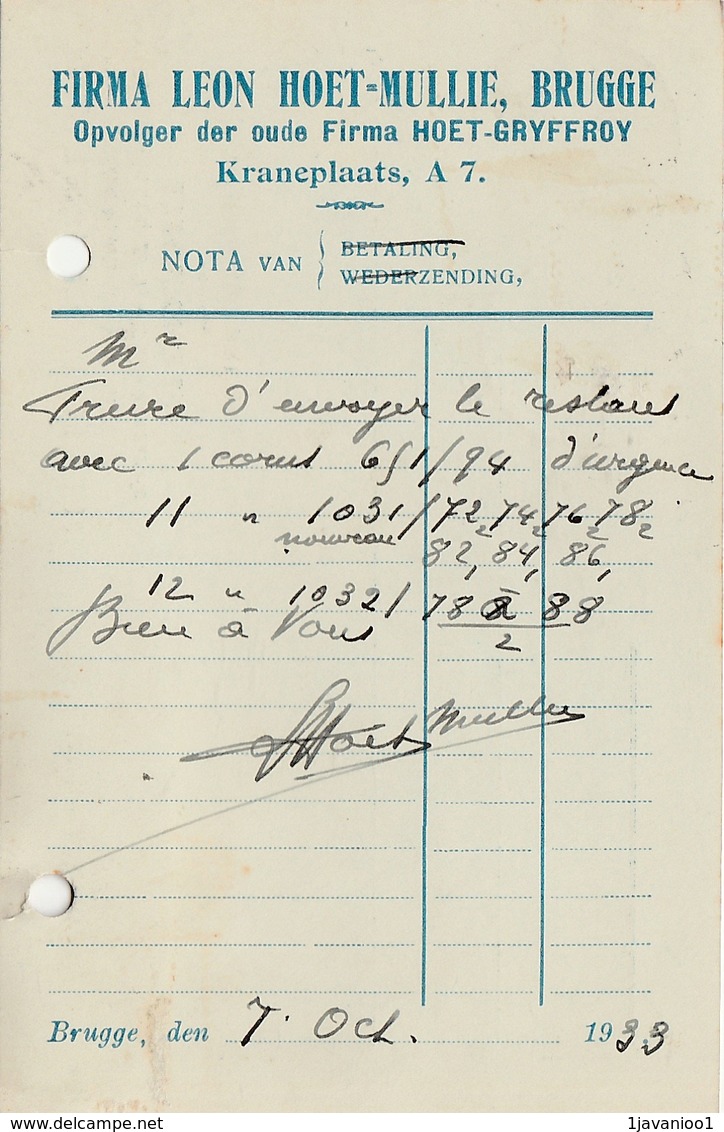 FIRMA LEON HOET-MULLIE, BRUGGE
Opvolger der oude Firma HOET-GRYFFROY
Kraneplaats, A 7.
NOTA VAN
BETALING,
WEDERZENDING,
Mr
d'envoyer le restant
avec 1 651/94 d'urgence
11 " 1031/72 74 76 78
2 2 2 2
nouveau 82, 84, 86,
12 " 1032/78 à 88
2
Bien à Vous
LHoet Mullie
Brugge, den 7. Oct. 1933
1javanioo1
delcampe.net